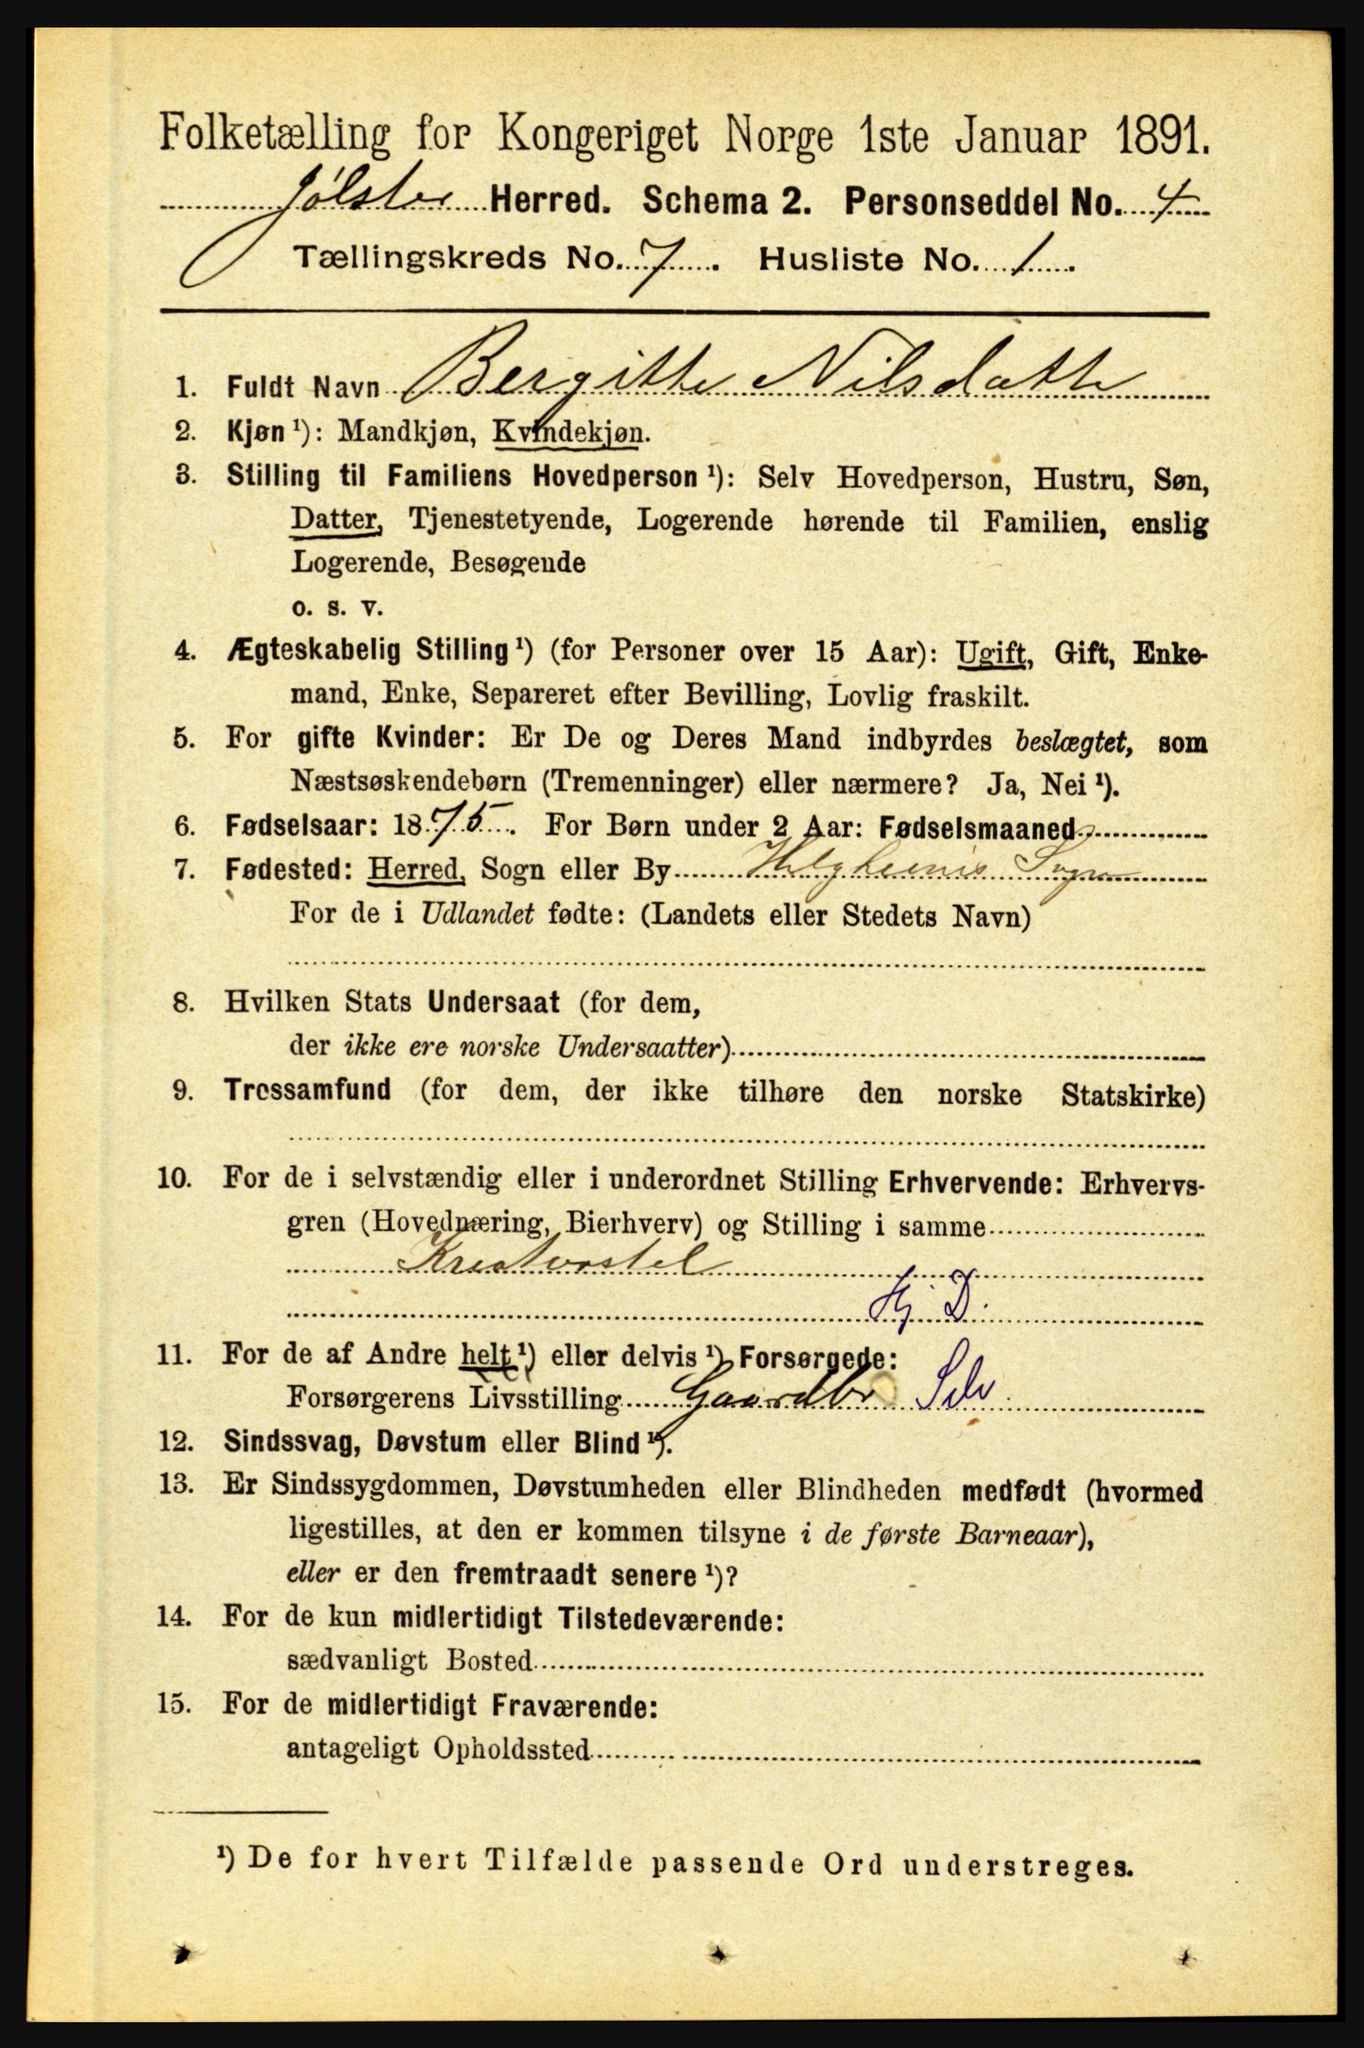 Folketælling for Kongeriget Norge 1ste Januar 1891.
Jølster Herred. Schema 2. Personseddel No. 4
Tællingskreds No. 7. Husliste No. 1.
1. Fuldt Navn Bergitte Nilsdatte
2. Kjøn ¹): Mandkjøn, Kvindekjøn.
3. Stilling til Familiens Hovedperson ¹): Selv Hovedperson, Hustru, Søn,
Datter, Tjenestetyende, Logerende hørende til Familien, enslig
Logerende, Besøgende
o. s. v.
4. Ægteskabelig Stilling ¹) (for Personer over 15 Aar): Ugift, Gift, Enke-
mand, Enke, Separeret efter Bevilling, Lovlig fraskilt.
5. For gifte Kvinder: Er De og Deres Mand indbyrdes beslægtet, som
Næstsøskendebørn (Tremenninger) eller nærmere? Ja, Nei ¹).
6. Fødselsaar: 1875. For Børn under 2 Aar: Fødselsmaaned
7. Fødested: Herred, Sogn eller By Helgheims Sogn
For de i Udlandet fødte: (Landets eller Stedets Navn)
8. Hvilken Stats Undersaat (for dem,
der ikke ere norske Undersaatter)
9. Trossamfund (for dem, der ikke tilhøre den norske Statskirke)
10. For de i selvstændig eller i underordnet Stilling Erhvervende: Erhvervs-
gren (Hovednæring, Bierhverv) og Stilling i samme
Kreaturstel
Hj. D.
11. For de af Andre helt ¹) eller delvis ¹) Forsørgede:
Forsørgerens Livsstilling Gaardbr Selv.
12. Sindssvag, Døvstum eller Blind ¹).
13. Er Sindssygdommen, Døvstumheden eller Blindheden medfødt (hvormed
ligestilles, at den er kommen tilsyne i de første Barneaar),
eller er den fremtraadt senere ¹)?
14. For de kun midlertidigt Tilstedeværende:
sædvanligt Bosted
15. For de midlertidigt Fraværende:
antageligt Opholdssted
¹) De for hvert Tilfælde passende Ord understreges.